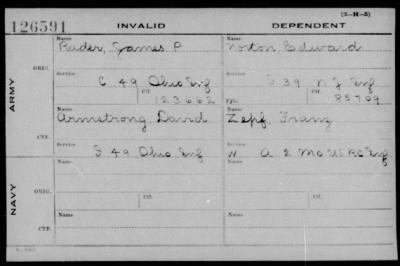 (3-H-5)
126591 INVALID DEPENDENT
Name Name
Rader, James P Norton Edward
ORIG.
Service Service
C 49 Ohio Inf 39 N J Inf
Ctf. Ctf.
123662 m 85709
ARMY
Name Name
Armstrong, David Zepf, Franz
CTF.
Service Service
49 Ohio Inf A 2 Mo U RC Inf
Name Name
ORIG.
Service Service
Ctf. Ctf.
NAVY
Name Name
CTF.